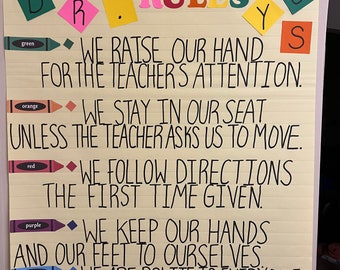 DR. RULES YS
green
WE RAISE OUR HAND
FOR THE TEACHER'S ATTENTION.
orange
WE STAY IN OUR SEAT
UNLESS THE TEACHER ASKS US TO MOVE.
red
WE FOLLOW DIRECTIONS
THE FIRST TIME GIVEN.
purple
WE KEEP OUR HANDS
AND OUR FEET TO OURSELVES.
WE ARE POLITE TO EVERYONE